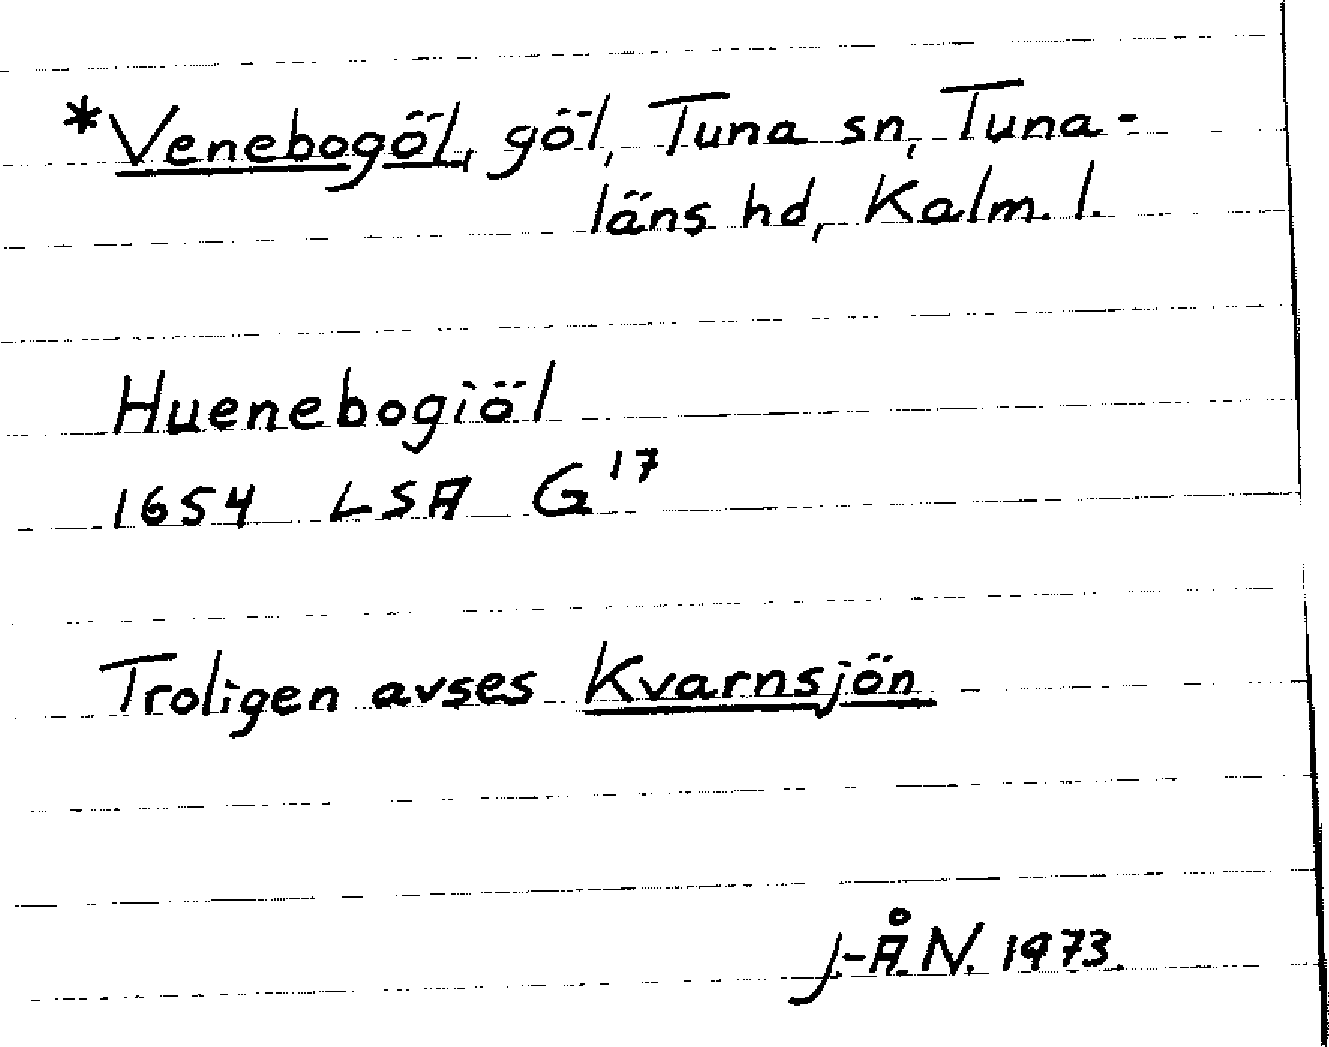 *Venebogöl, göl, Tuna sn, Tuna-
läns hd, Kalm. l.
Huenebogiöl
1654 LSA G 17
Troligen avses Kvarnsjön
J.-Å. N. 1973.